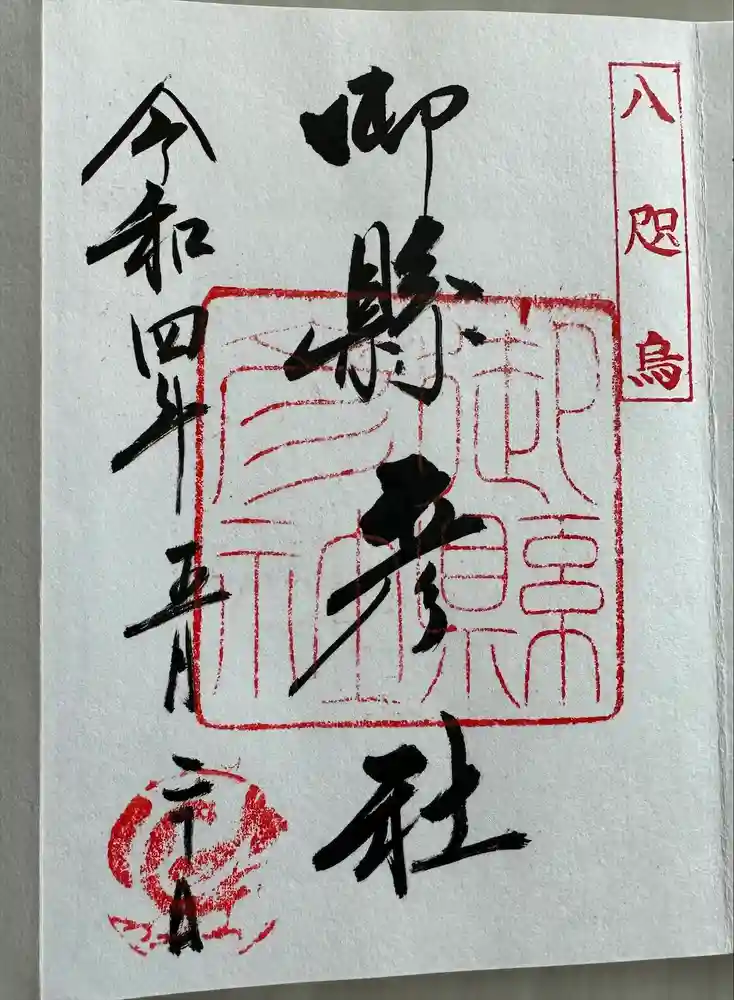 八咫烏
御縣彦社
御縣彦社
令和四年五月二十日